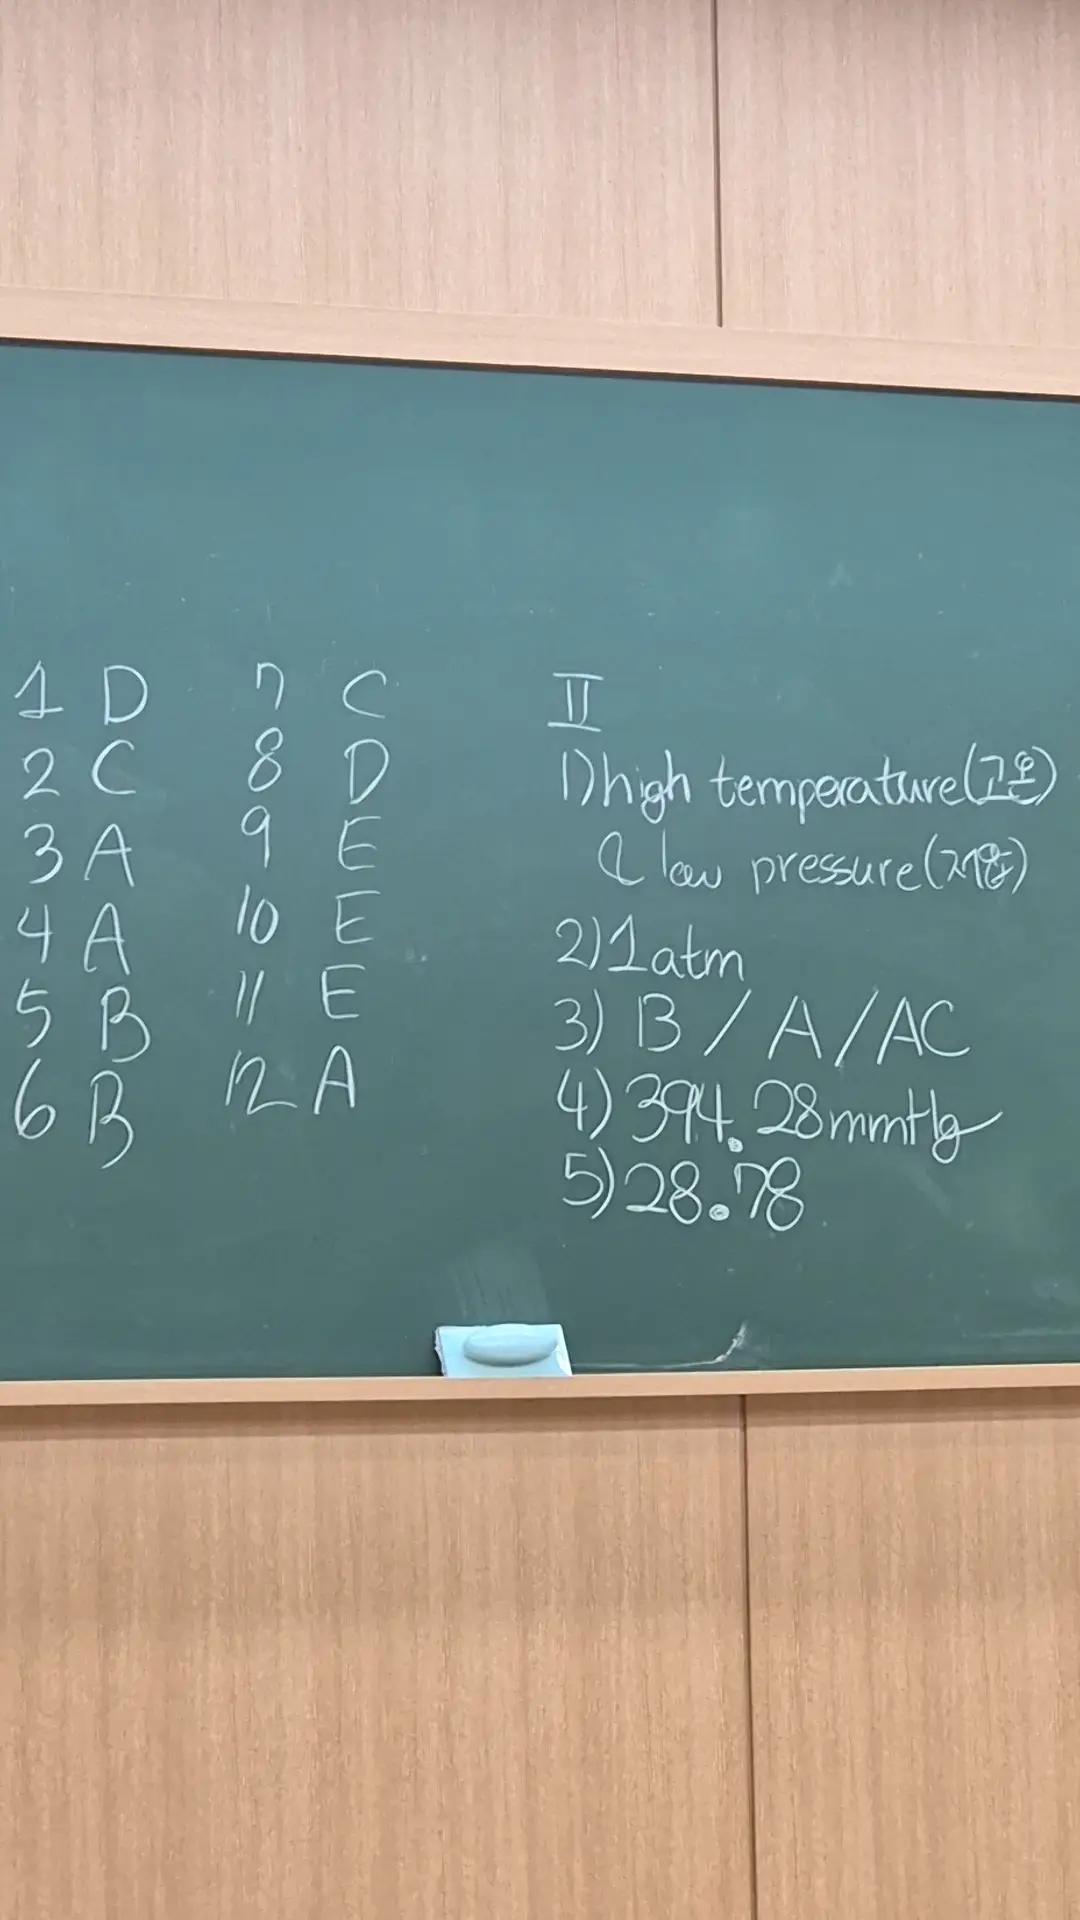 1 D
2 C
3 A
4 A
5 B
6 B
7 C
8 D
9 E
10 E
11 E
12 A
II
1) high temperature (고온)
& low pressure (저압)
2) 1 atm
3) B / A / AC
4) 394.28 mmHg
5) 28.78